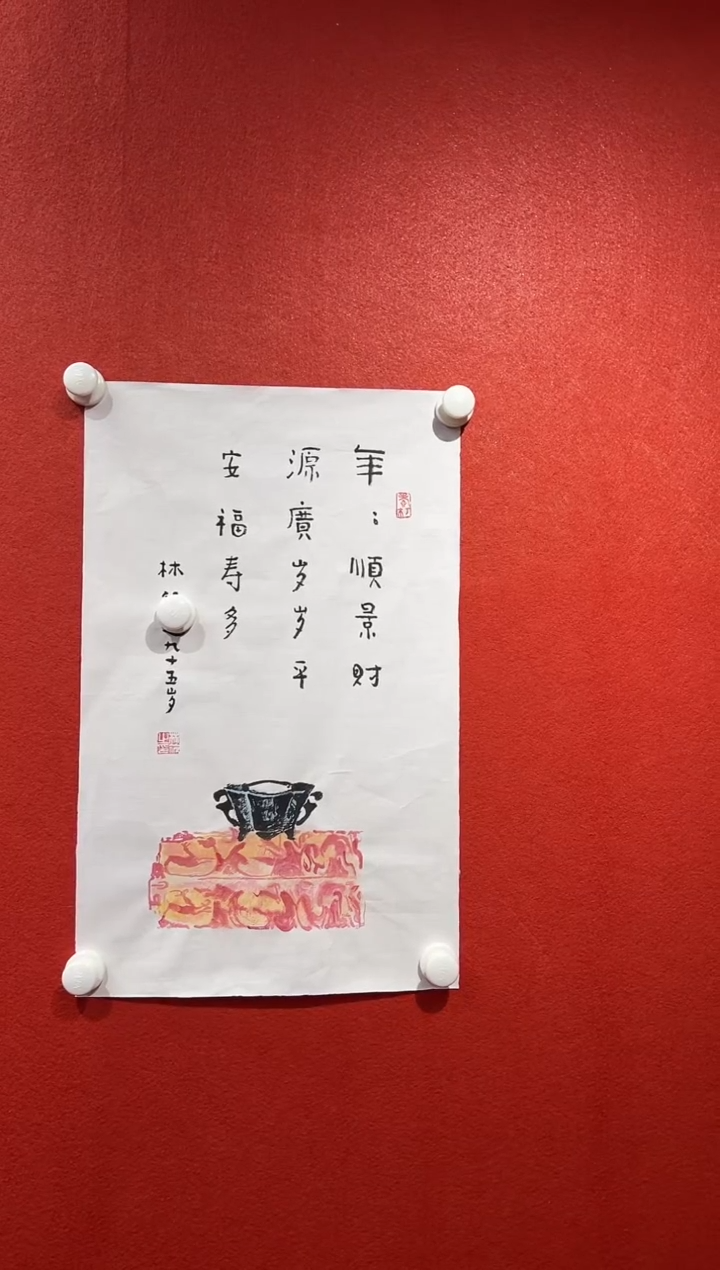 年：順景財
源廣岁岁平
安福寿多
林 九十五岁